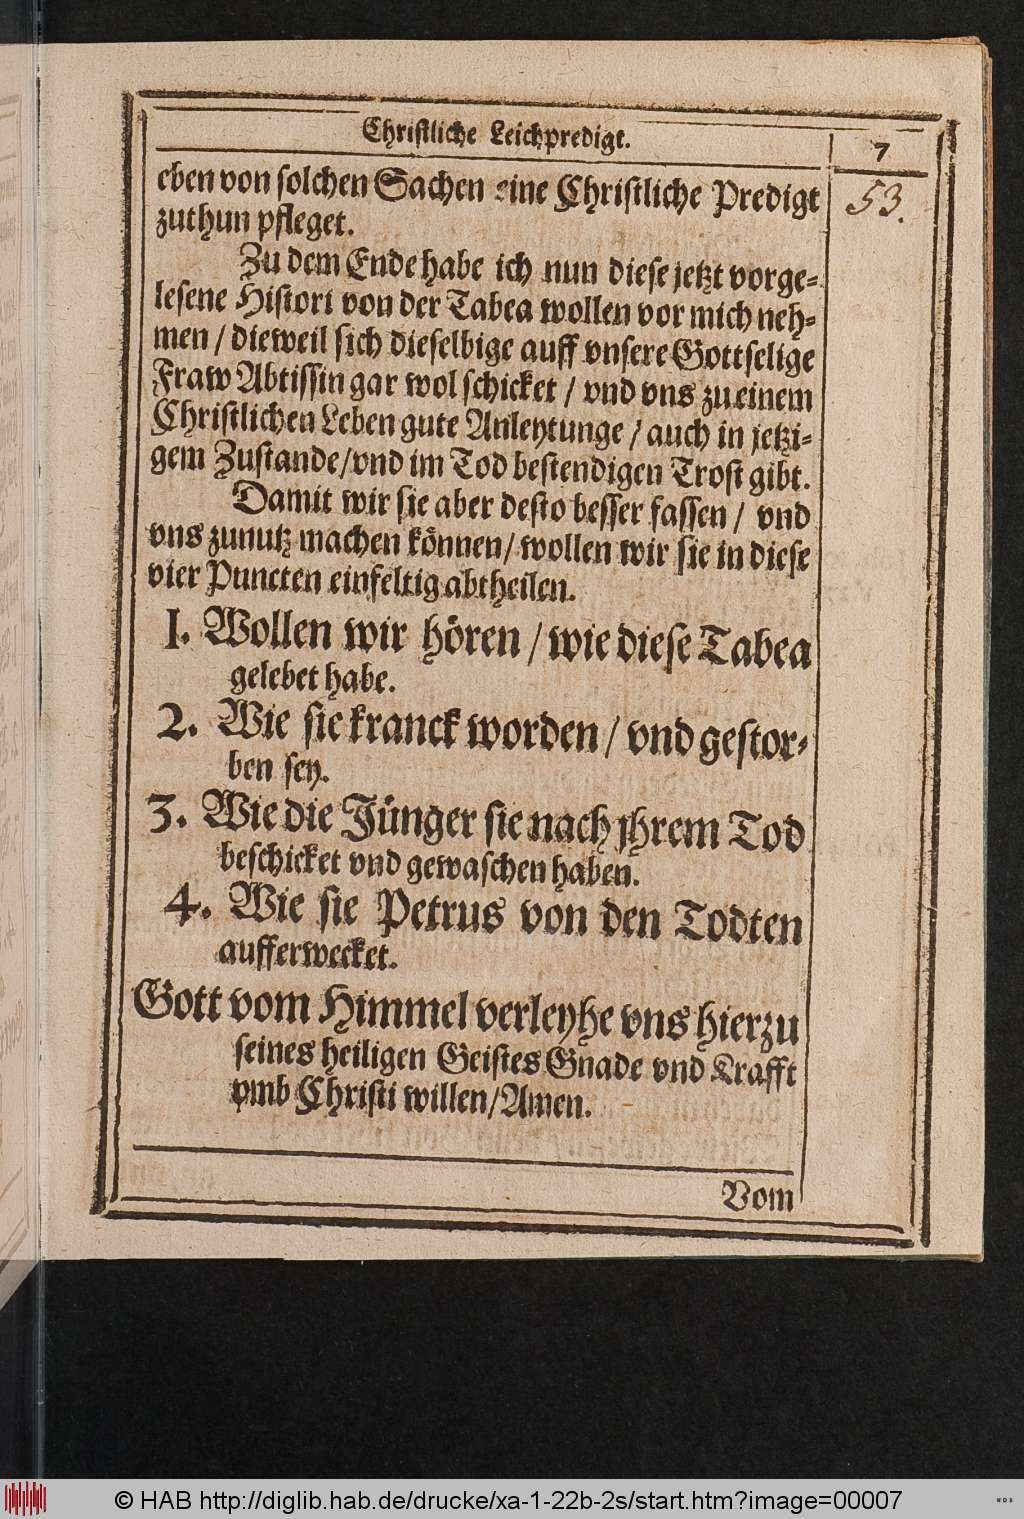 Christliche Leichpredigt.
7
53.
eben von solchen Sachen eine Christliche Predigt
zuthun pfleget.
Zu dem Ende habe ich nun diese jetzt vorge-
lesene Histori von der Tabea wollen vor mich neh-
men / dieweil sich dieselbige auff vnsere Gottselige
Fraw Abtissin gar wol schicket / vnd vns zu einem
Christlichen Leben gute Anleytunge / auch in jetzi-
gem Zustande / vnd im Tod bestendigen Trost gibt.
Damit wir sie aber desto besser fassen / vnd
vns zunutz machen können / wollen wir sie in diese
vier Puncten einfeltig abtheilen.
1. Wollen wir hören / wie diese Tabea
gelebet habe.
2. Wie sie kranck worden / vnd gestor-
ben sey.
3. Wie die Jünger sie nach jhrem Tod
beschicket vnd gewaschen haben.
4. Wie sie Petrus von den Todten
aufferwecket.
Gott vom Himmel verleyhe vns hierzu
seines heiligen Geistes Gnade vnd Krafft
vmb Christi willen / Amen.
Vom
© HAB http://diglib.hab.de/drucke/xa-1-22b-2s/start.htm?image=00007